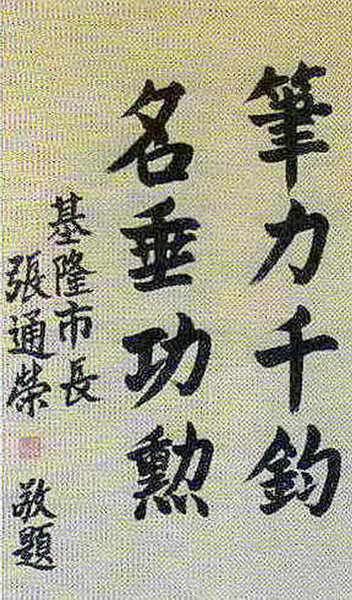 筆力千鈞
名垂功勳
基隆市長
張通榮
敬題